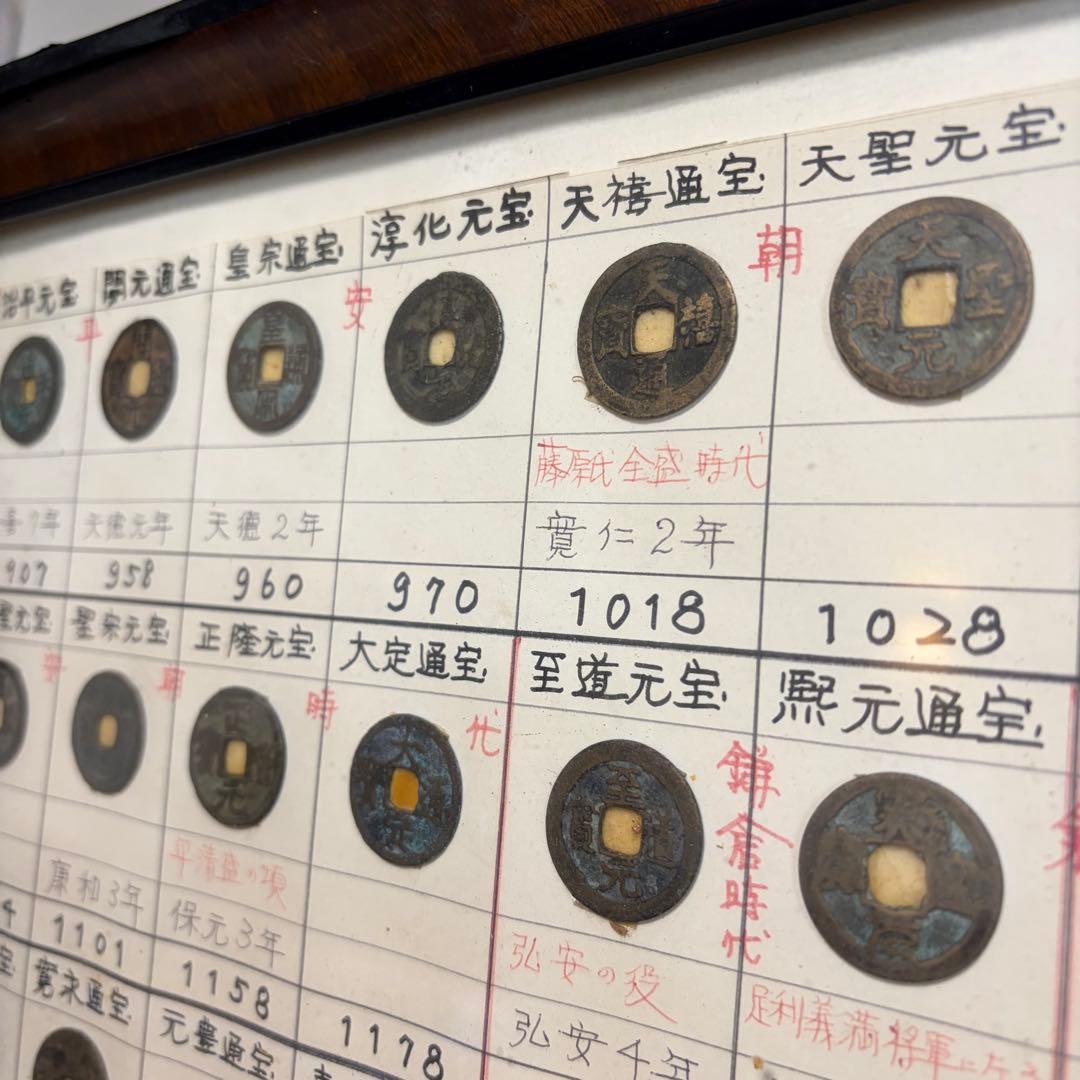 治平元宝 開元通宝 皇宗通宝 淳化元宝 天禧通宝 天聖元宝
平 安 朝
天禧通寶
天聖元寶
藤原氏全盛時代
天徳元年 天徳2年 寛仁2年
907 958 960 970 1018 1028
聖宗元宝 正隆元宝 大定通宝 至道元宝 熙元通宝
安 朝 時 代
鎌倉時代
正元
大
至道元寶
平清盛の頃
弘安の役
足利義満将軍になる
康和3年 保元3年 弘安4年
4 1101 1158 1178
寛永通宝 元豊通宝